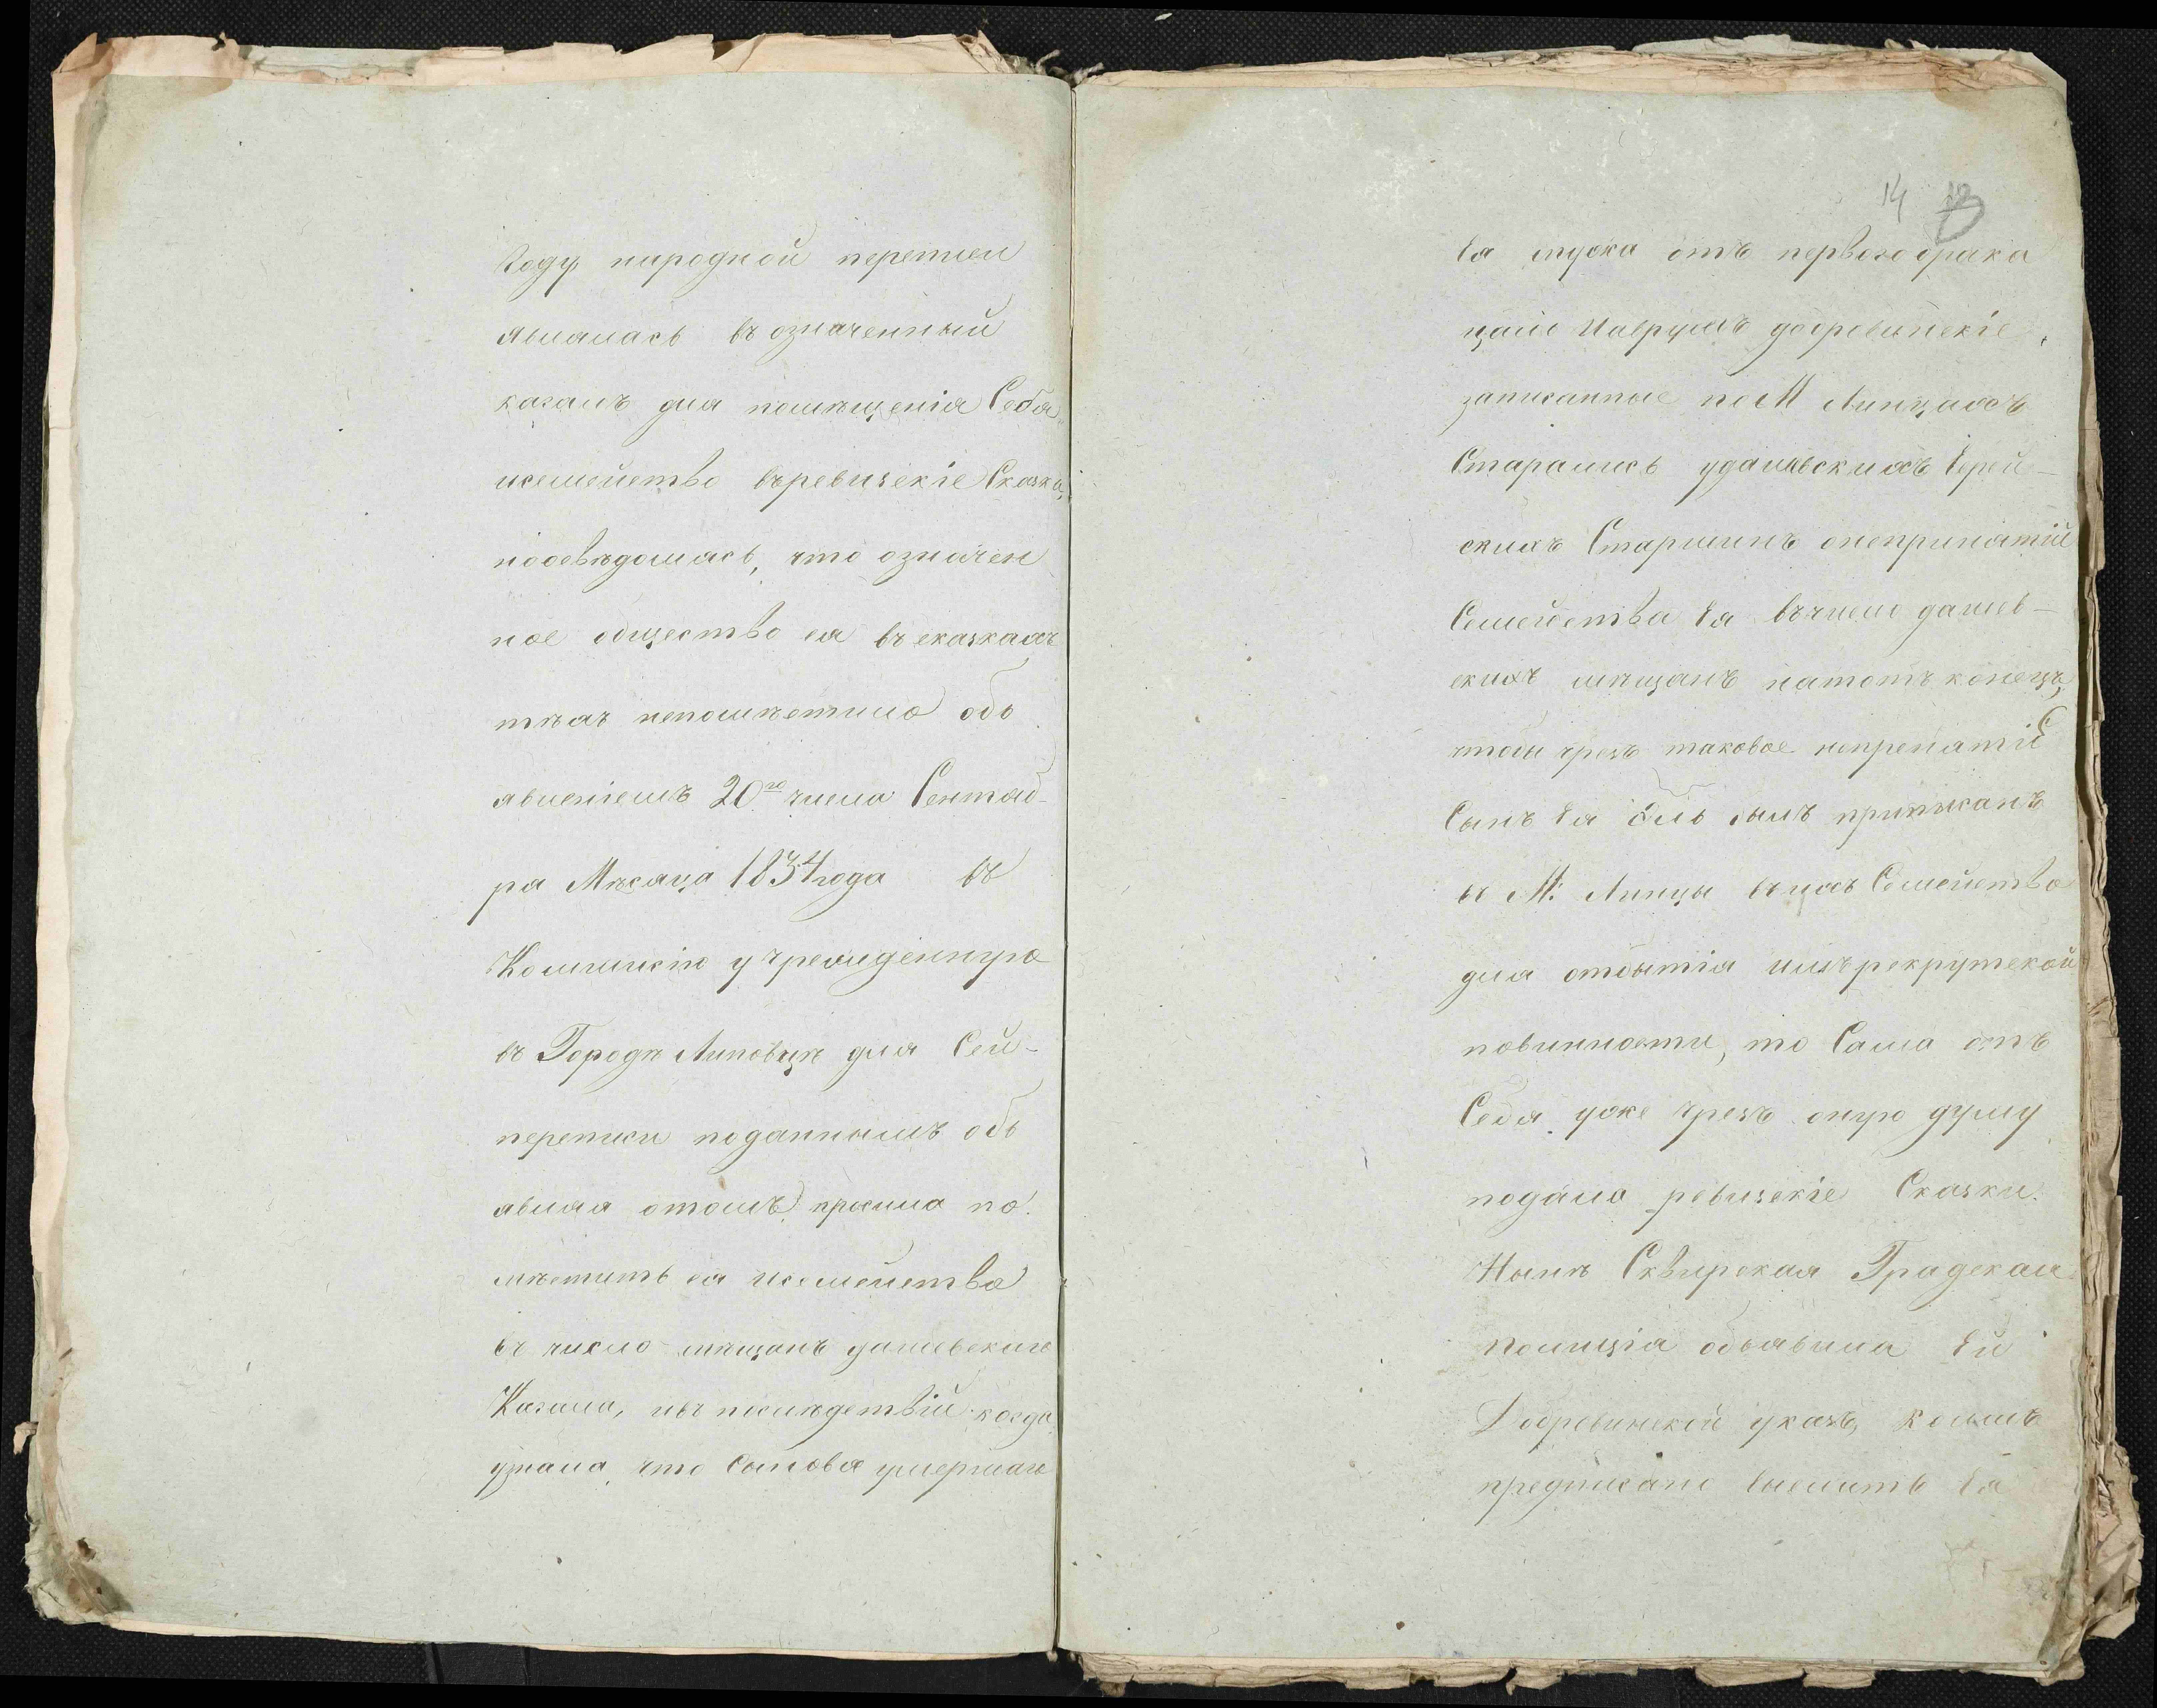 году народной переписи
являлась въ означенный
кагалъ для помѣщенія Себя
исемейство въревизскіе Сказки,
поосвѣдомясь, что означен
ное общество ея въ сказкахъ
тѣхъ непомѣстило обо
явленіемъ 20го числа Сентяб-
ра Мѣсяца 1834 года въ
Коммисію учрежденную
въ Городѣ Липовцѣ для Сей-
переписи поданнымъ объ
являя отомъ просила по
мѣстить ея исемейства
въ число мѣщанъ дашевскаго
Кагала, ивъ послѣдствій когда
узнала что Сыновья умершаго
14
Ея мужа отъ первого брака
записанные по М Линцахъ
Старались удашевскихъ Еврей-
скихъ Старшинъ онепринятіи
Семейства Ея въчисло дашев-
скихъ мѣщанъ натотъ конецъ,
чтобы чрезъ таковое непренятіе
Сынъ Ея былъ приписанъ
въ М: Линцы въихъ Семейство
для отбытія имъ рекрутской
повинности, то Сама отъ
Себя уже чрезъ оную думу
подала ревизскіе Сказки.
Нынѣ Сквирская Градская
полиція объявила Ей
Добровинской указъ, коимъ
предписано выслать Ея